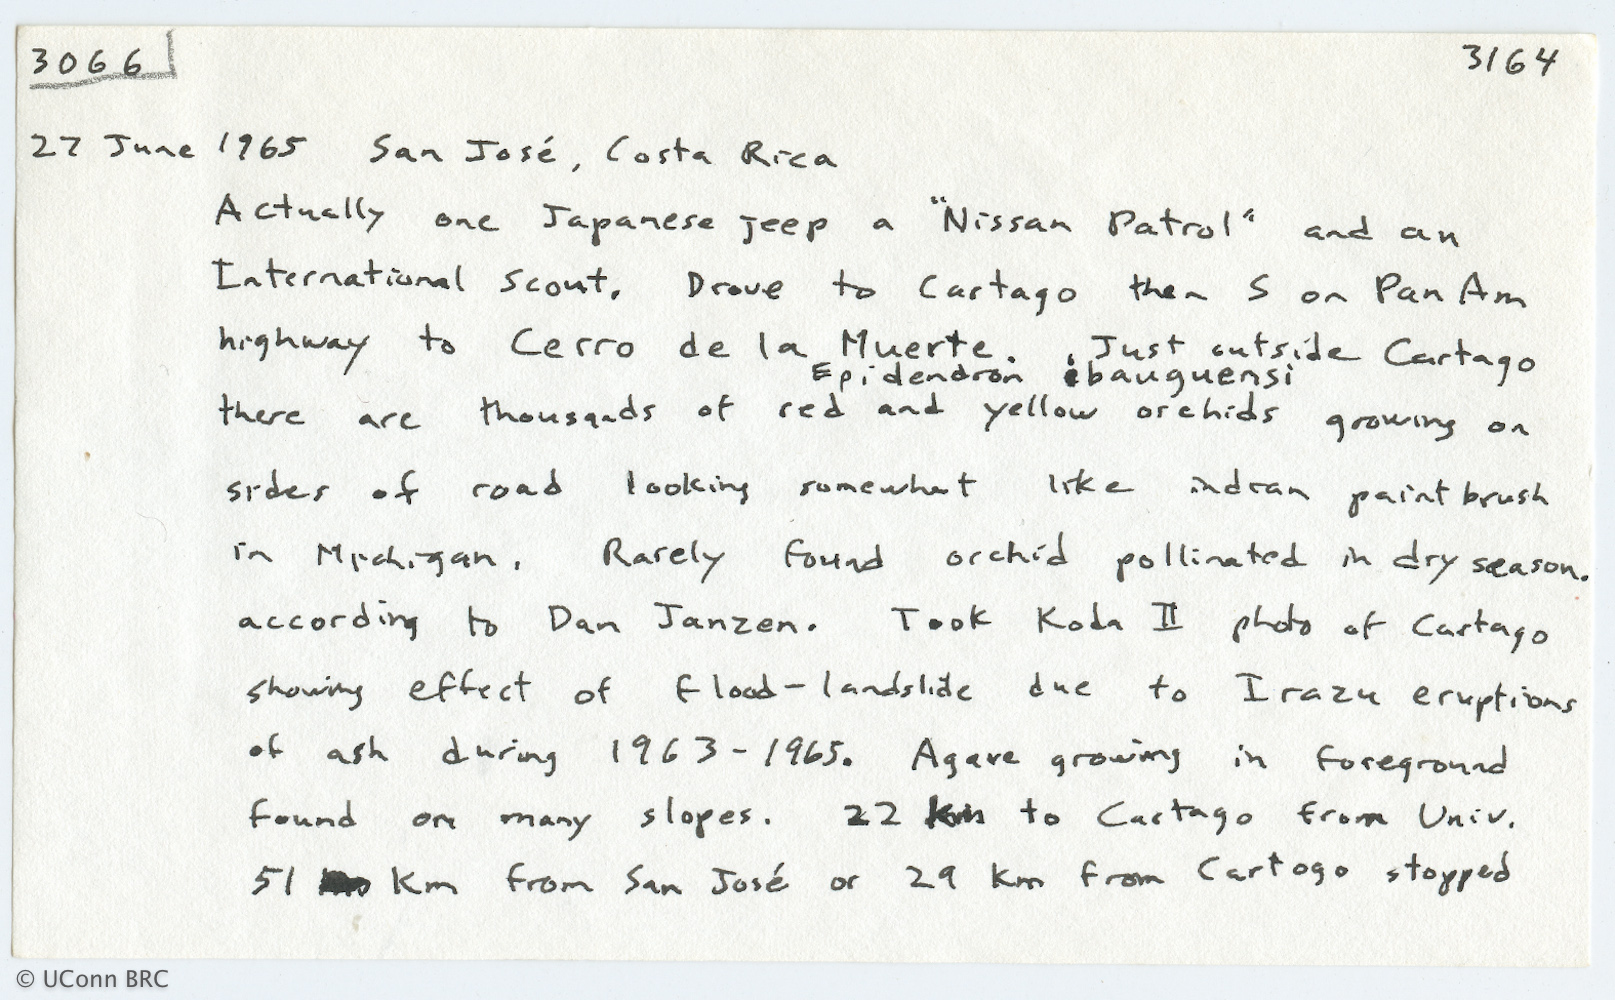 3066 3164
27 June 1965 San José, Costa Rica
Actually one Japanese jeep a "Nissan Patrol" and an
International Scout. Drove to Cartago then S on Pan Am
highway to Cerro de la Muerte. Just outside Cartago
Epidendron ibauguensi
there are thousands of red and yellow orchids growing on
sides of road looking somewhat like indian paint brush
in Michigan. Rarely found orchid pollinated in dry season.
according to Dan Janzen. Took Koda II photo of Cartago
showing effect of flood-landslide due to Irazu eruptions
of ash during 1963-1965. Agave growing in foreground
found on many slopes. 22 km to Cartago from Univ.
51 Km from San José or 29 km from Cartogo stopped
© UConn BRC